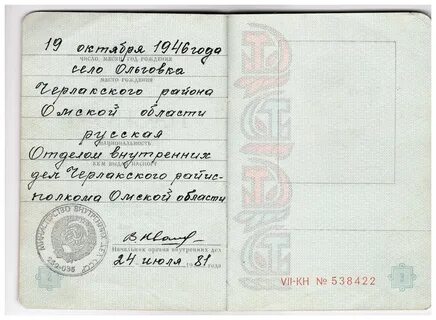 19 октября 1946 года
ЧИСЛО, МЕСЯЦ, ГОД РОЖДЕНИЯ
село Ольговка
МЕСТО РОЖДЕНИЯ
Черлакского района
Омской области
русская
НАЦИОНАЛЬНОСТЬ
Отделом внутренних
КЕМ ВЫДАН ПАСПОРТ
дел Черлакского райис-
полкома Омской области
МИНИСТЕРСТВО ВНУТРЕННИХ ДЕЛ СССР
552-035
Начальник органа внутренних дел
24 июля 81 года
VII-КН № 538422